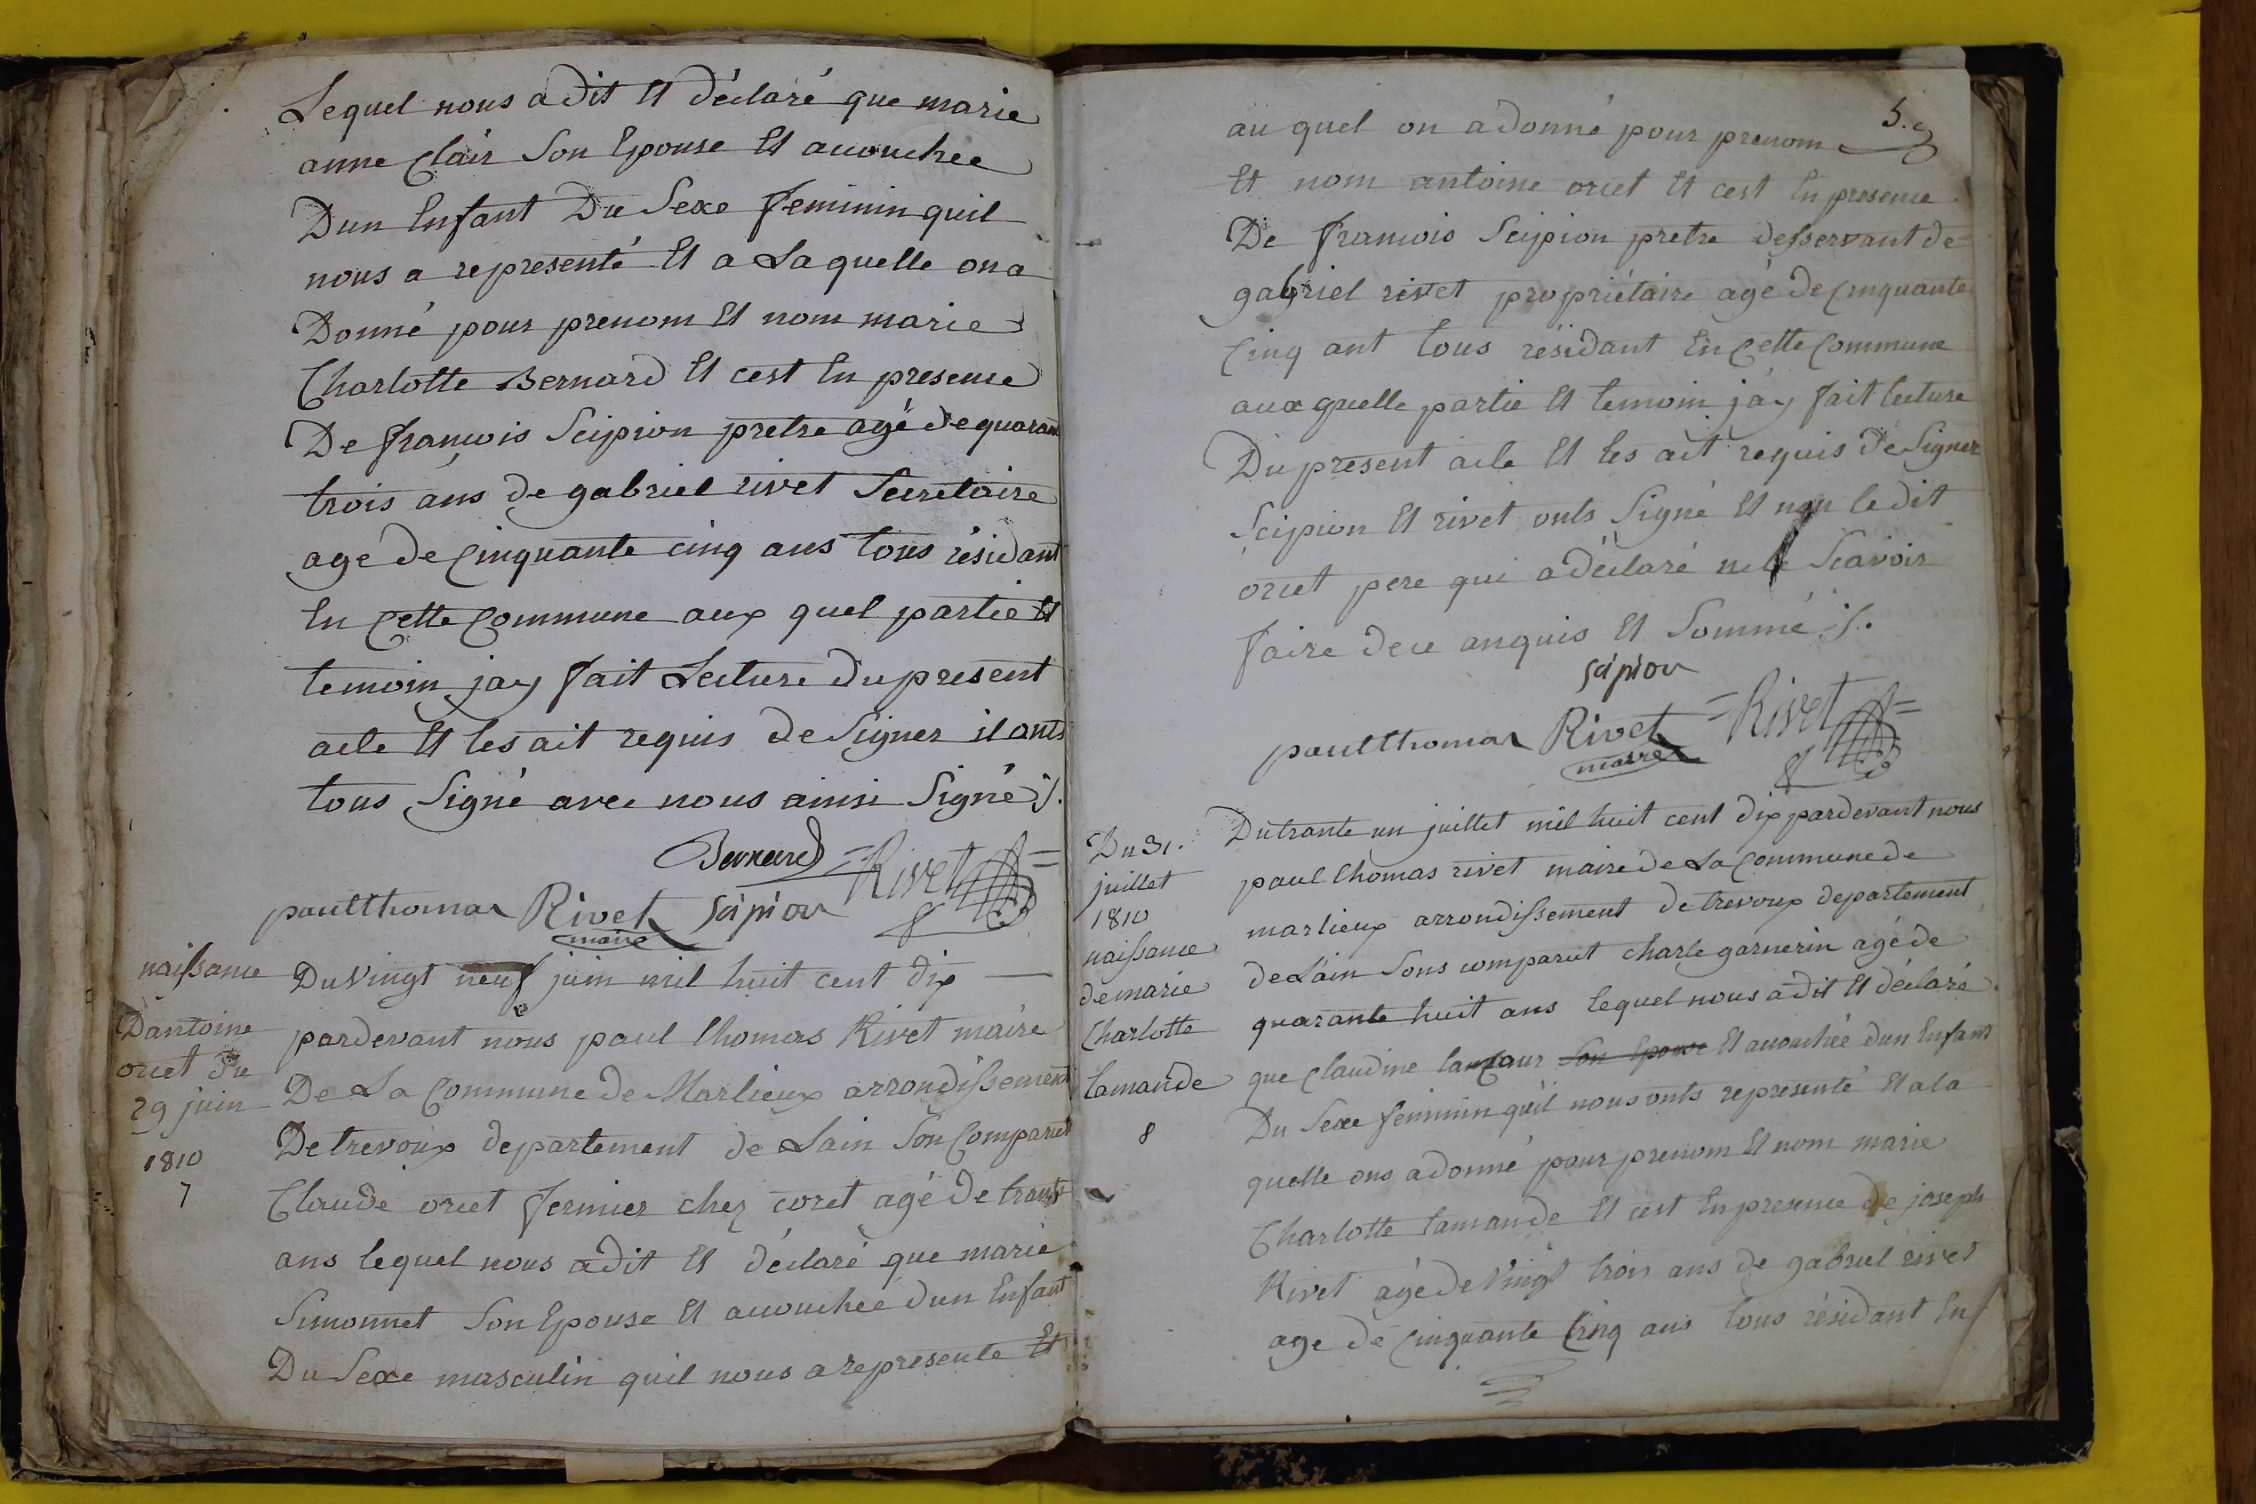 Lequel nous a dit Et déclaré que marie
anne Clair Son Epouse Et acouchee
Dun Enfant Du Sexe feminin quil
nous a representé Et a Laquelle on a
Donné pour prenom Et nom marie
Charlotte Bernard Et cest En presence
De francois Scipion pretre agé de quarante
trois ans de gabriel rivet Secretaire
age de Cinquante cinq ans tous résidant
En Cette Commune aux quel partie Et
temoin jay fait Lecture du present
acte Et les ait requis de Signer il onts
tous Signé avec nous ainsi Signé
Bernard Rivet
paul thomas Rivet Scipion
maire
naissance
Dantoine
oriet Du
29 juin
1810
7
Du Vingt neuf juin mil huit cent dix
pardevant nous paul thomas Rivet maire
De La Commune de Marlieux arrondissement
De trevoux departement de Lain Son Comparut
Claude oriet fermier chez coret agé de trante
ans lequel nous a dit Et déclaré que marie
Simonnet Son Epouse Et acouchée dun Enfant
Du Sexe masculin quil nous a represente Et
5.
au quel on a donné pour prenom
Et nom antoine oriet Et cest En presence
De francois Scipion pretre desservant de
gabriel rivet propriétaire agé de Cinquante
Cinq ant tous résidant En Cette Commune
aux quelle partie Et temoin jay fait lecture
Du present acte Et les ait requis de Signer
Scipion Et rivet onts Signé Et non ledit
oriet pere qui a déclaré ne le Scavoir
faire de ce anquis Et Sommé
Scipion
paul thomas Rivet Rivet
maire
Du 31.
juillet
1810
naissance
de marie
Charlotte
lamande
8
Du trante un juillet mil huit cent dix pardevant nous
paul thomas rivet maire de La Commune de
marlieux arrondissement de trevoux departement
de Lain Sons comparut charle garnerin agé de
quarante huit ans lequel nous a dit Et déclaré
que Claudine Son Epouse Et acouchée dun Enfant
Du Sexe feminin quil nous onts representé Et a la
quelle ons a donné pour prenom Et nom marie
Charlotte lamande Et cest En presence de joseph
Rivet agé de Vingt trois ans de gabriel rivet
age de Cinquante Cinq ans tous résidant En